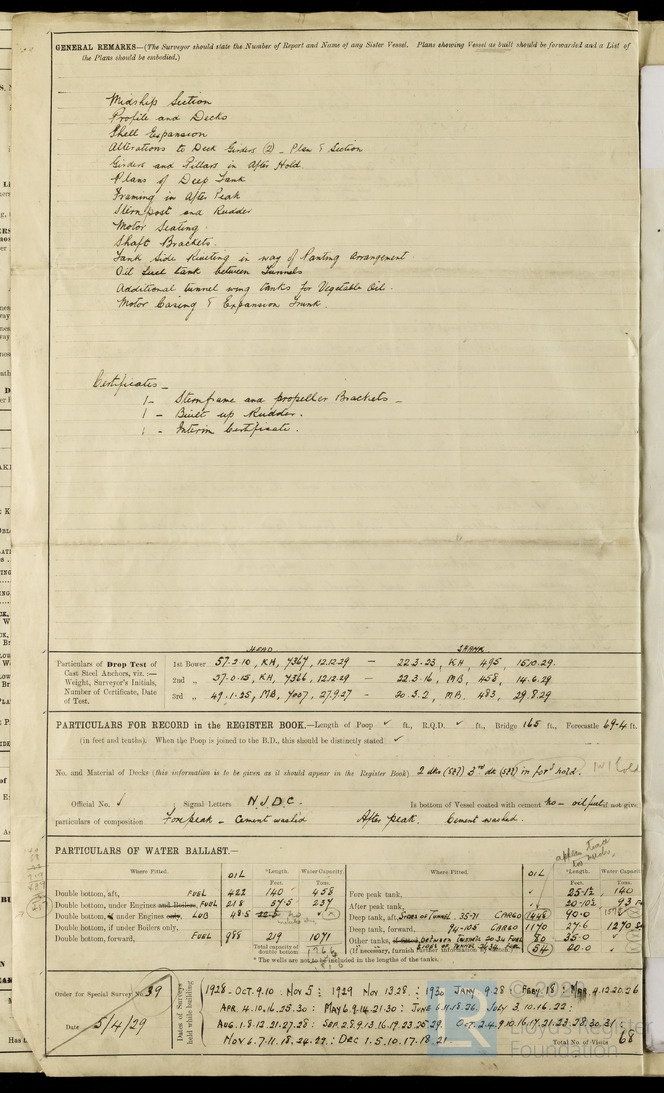 GENERAL REMARKS—(The Surveyor should state the Number of Report and Name of any Sister Vessel. Plans showing Vessel as built should be forwarded and a List of
the Plans should be embodied.)
Midship Section
Profile and Decks
Shell Expansion
Alterations to Deck Girders (2) - Plan & Section
Girders and Pillars in After Hold
Plans of Deep Tank
Framing in After Peak
Sternpost and Rudder
Motor Seating.
Shaft Brackets.
Tank Side Riveting in way of Panting Arrangement
Oil fuel tank between Tunnels
Additional tunnel wing tanks for Vegetable Oil.
Motor Casing & Expansion Trunk.
Certificates -
1 - Sternframe and propeller Brackets -
1 - Built up Rudder.
1 - Interim Certificate.
HEAD SHANK
Particulars of Drop Test of
Cast Steel Anchors, viz. :—
Weight, Surveyor's Initials,
Number of Certificate, Date
of Test.
1st Bower 57.2.10, KH, 7367, 12.12.29 - 22.3.23, KH, 495, 15.10.29.
2nd „ 57.0.15, KH, 7366, 12.12.29 - 22.3.16, MB, 458, 14.6.29
3rd „ 49.1.25, MB, 7007, 27.9.27 - 20.3.2, MB, 483, 29.8.29
PARTICULARS FOR RECORD in the REGISTER BOOK.—Length of Poop ✓ ft., R.Q.D. ✓ ft., Bridge 165 ft., Forecastle 69.4 ft.
(in feet and tenths). When the Poop is joined to the B.D., this should be distinctly stated ✓
No. and Material of Decks (this information is to be given as it should appear in the Register Book) 2 dks (stl) 3rd dk (stl) in for'd hold.
Official No. Signal Letters N.J.D.C. Is bottom of Vessel coated with cement no - oil fuel if not give
particulars of composition Fore peak - Cement washed After peak. Cement washed.
PARTICULARS OF WATER BALLAST.—
Where Fitted. OIL *Length. Water Capacity.
Feet. Tons.
Double bottom, aft, FUEL 422 140 458
Double bottom, under Engines and Boilers, FUEL 218 57.5 237
Double bottom, if under Engines only, LUB 48.5
Double bottom, if under Boilers only,
Double bottom, forward, FUEL 988 219 1071
Total capacity of double bottom
* The wells are not to be included in the lengths of the tanks.
Where Fitted. OIL *Length. Water Capacity.
Feet. Tons.
Fore peak tank, 25.12 140
After peak tank, 20.10½ 93
Deep tank, aft, Sides of Tunnel 35-71 CARGO 1448 90.0
Deep tank, forward, 94-105 CARGO 1170 27.6 1270
Other tanks, if fitted, between Tunnels 20-34 FUEL 80 35.0
(If necessary, furnish further information by sketch.) 54 20.0
Order for Special Survey No. 39
Date 5/4/29
Dates of Surveys
held while building
1928. OCT. 9.10 : NOV 5 : 1929 NOV 13.28 : 1930 JANY 9.28 FEBY 18 : MAR. 4.12.20.26
APR. 4.10.16.25.30 : MAY 6.9.14.21.30 : JUNE 6.11.18.26. JULY 3.10.16.22 :
AUG. 1.8.12.21.27.28 : SEP. 2.8.9.13.16.19.23.25.29. OCT. 2.4.9.10.16.17.21.23.28.30.31
NOV 6.7.11.18.24.29. : DEC 1.5.10.17.18.21.
Total No. of Visits 68
© 202
Lloyd's Register
Foundation